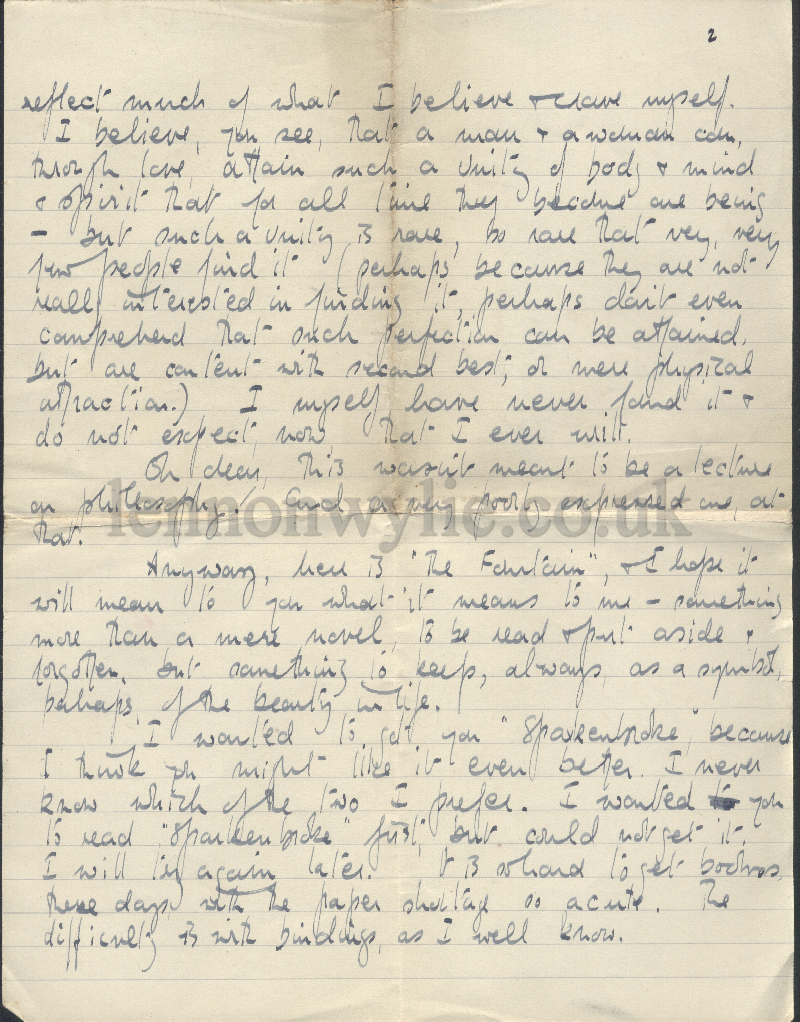 2
reflect much of what I believe & crave myself.
I believe, you see, that a man & a woman can,
through love, attain such a unity of body & mind
& spirit that for all time they become one being
- but such a unity is rare, so rare that very, very
few people find it (perhaps because they are not
really interested in finding it, perhaps don't even
comprehend that such perfection can be attained,
but are content with second best, or mere physical
attraction.) I myself have never found it &
do not expect, now that I ever will.
Oh dear, this wasn't meant to be a lecture
on philosophy! And a very poorly expressed one, at
that.
lennonwylie.co.uk
Anyway, here is "The Fountain", & I hope it
will mean to you what it means to me - something
more than a mere novel, to be read & put aside &
forgotten, but something to keep, always, as a symbol,
perhaps, of the beauty in life.
I wanted to get you "Sparkenbroke", because
I think you might like it even better. I never
know which of the two I prefer. I wanted you
to read "Sparkenbroke" first, but could not get it.
I will try again later. It is so hard to get books,
these days, with the paper shortage so acute. The
difficulty is with bindings, as I well know.